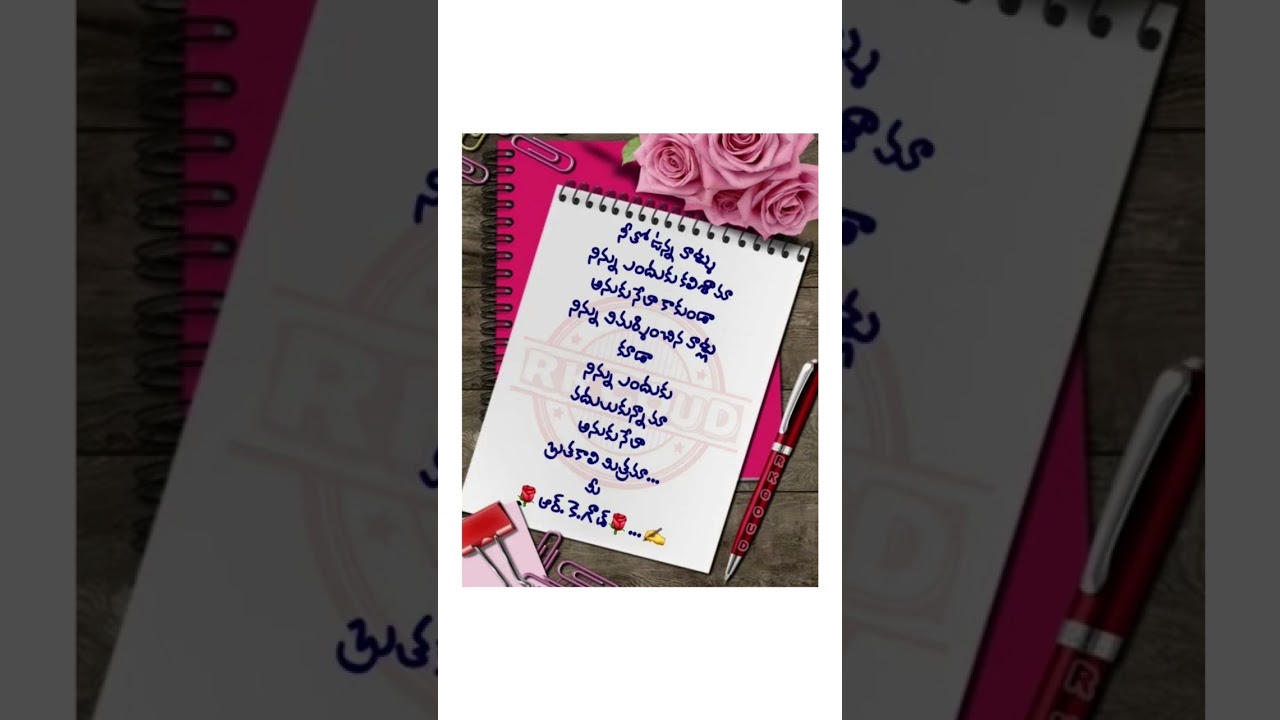 నీతో ఉన్న వాళ్ళు
నిన్ను ఎందుకు కలిశామా
అనుకునేలా కాకుండా
నిన్ను విమర్శించిన వాళ్లు
కూడా
నిన్ను ఎందుకు
వదులుకున్నామా
అనుకునేలా
బ్రతకాలి మిత్రమా...
మీ
🌹ఆర్. కె.గౌడ్🌹...✍️
RKGOUD